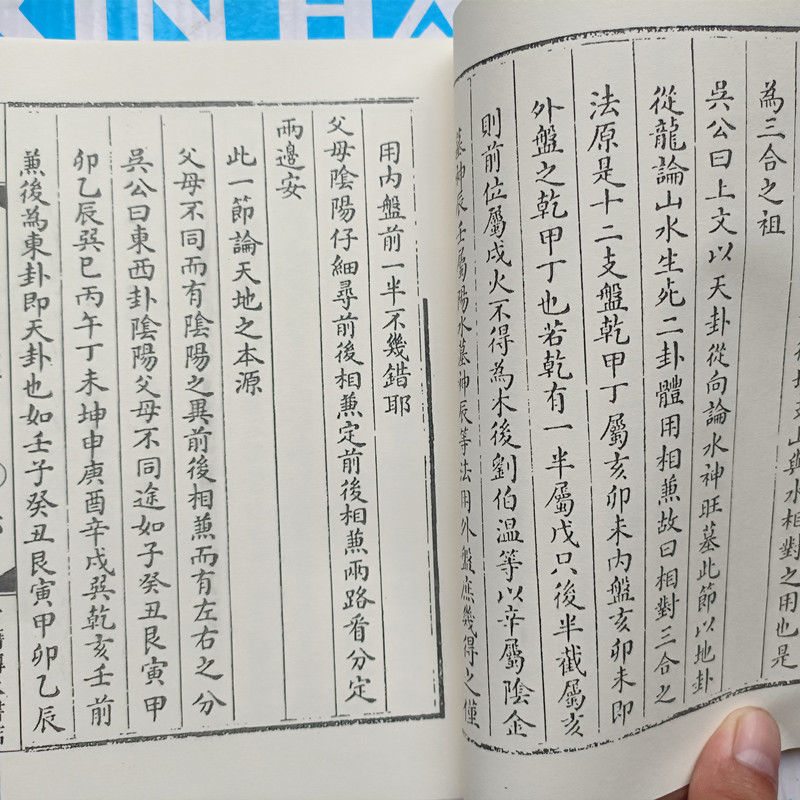 KIN HA
山與水相對之用也是
為三合之祖
吳公曰上文以天卦從向論水神旺墓此節以地卦
從龍論山水生死二卦體用相蒹故曰相對三合之
法原是十二支盤乾甲丁屬亥卯未內盤亥卯未即
外盤之乾甲丁也若乾有一半屬戌只後半截屬亥
則前位屬戌火不得為木後劉伯溫等以辛屬陰金
墓神辰壬屬陽水墓神辰等法用外盤庶幾得之僅
用內盤前一半不幾錯耶
父母陰陽仔細尋前後相蒹定前後相蒹兩路看分定
兩邊安
此一節論天地之本源
父母不同而有陰陽之異前後相蒹而有左右之分
吳公曰東西卦陰陽父母不同途如子癸丑艮寅甲
卯乙辰巽巳丙午丁未坤申庚酉辛戌巽乾亥壬前
蒹後為東卦即天卦也如壬子癸丑艮寅甲卯乙辰